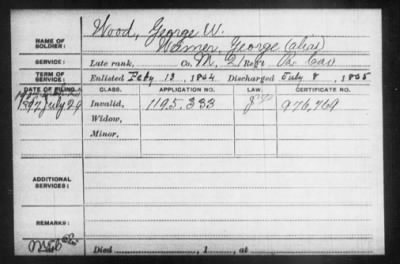 NAME OF SOLDIER: Wood, George W.
Warner, George (alias)
SERVICE: Late rank, Co. M, 2 Reg't Cav
TERM OF SERVICE: Enlisted Feby 13, 1864 Discharged July 8, 1865
DATE OF FILING. CLASS. APPLICATION NO. LAW. CERTIFICATE NO.
1897 July 29 Invalid, 1195,333 976,769
Widow,
Minor,
ADDITIONAL SERVICES:
REMARKS:
Died , 1 , at